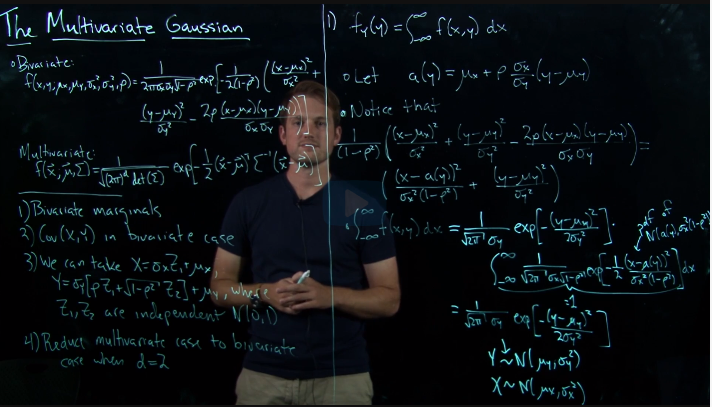 The Multivariate Gaussian
• Bivariate:
f(x,y,μx,μy,σx²,σy²,ρ)= 1/(2πσxσy√1-ρ²) exp[-1/(2(1-ρ²)) ((x-μx)²/σx² +
(y-μy)²/σy² - 2ρ(x-μx)(y-μy)/(σxσy))]
Multivariate:
f(x⃗,μ⃗,Σ)= 1/√((2π)^d det(Σ)) exp[-1/2 (x⃗-μ⃗)ᵀ Σ⁻¹(x⃗-μ⃗)]
1) Bivariate marginals
2) Cov(X,Y) in bivariate case
3) We can take X=σxZ₁+μx,
Y=σy[ρZ₁+√1-ρ² Z₂]+μy, where
Z₁,Z₂ are independent N(0,1)
4) Reduct multivariate case to bivariate
case when d=2
1) fY(y) = ∫_{-∞}^{∞} f(x,y) dx
• Let a(y) = μx + ρ σx/σy (y-μy)
• Notice that
1/(1-ρ²) ((x-μx)²/σx² + (y-μy)²/σy² - 2ρ(x-μx)(y-μy)/(σxσy)) =
((x-a(y))²/(σx²(1-ρ²)) + (y-μy)²/σy²)
• ∫_{-∞}^{∞} f(x,y) dx = 1/(√2π σy) exp[-(y-μy)²/(2σy²)] ·
pdf of
N(a(y),σx²(1-ρ²))
∫_{-∞}^{∞} 1/(√2π σx√1-ρ²) exp[-1/2 (x-a(y))²/(σx²(1-ρ²))] dx
=1
= 1/(√2π σy) exp[-(y-μy)²/(2σy²)]
Y~N(μy,σy²)
X~N(μx,σx²)